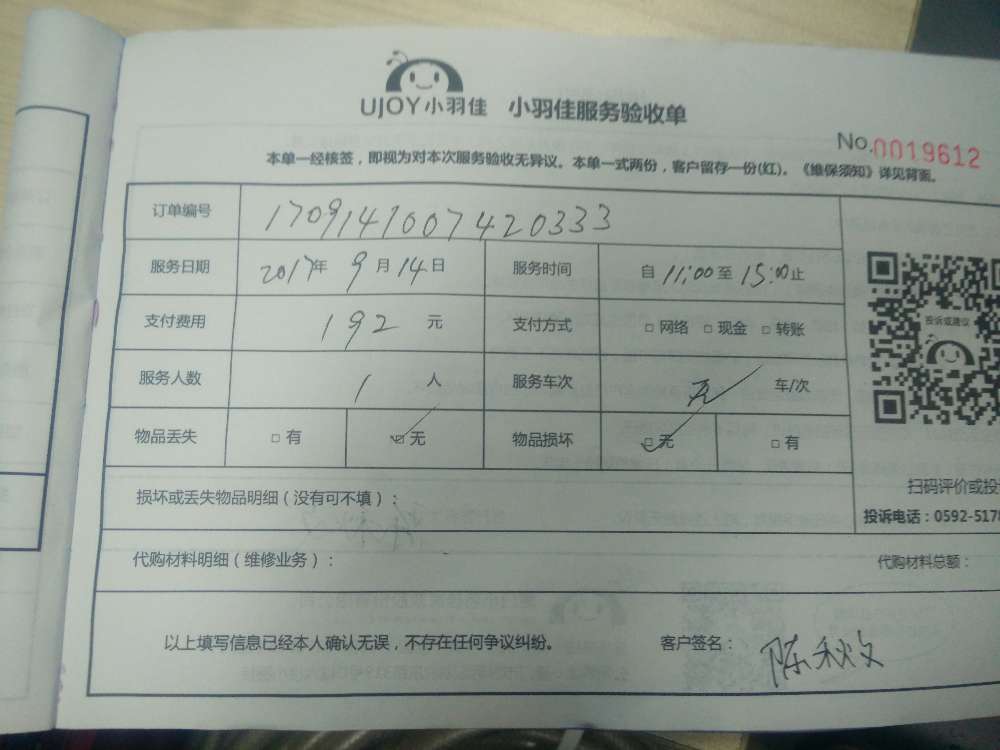 UJOY小羽佳 小羽佳服务验收单
No.0019612
本单一经核签，即视为对本次服务验收无异议。本单一式两份，客户留存一份(红)。《维保须知》详见背面。
订单编号 1709141007420333
服务日期 2017年 9月14日 服务时间 自 11:00 至 15:00 止
支付费用 192 元 支付方式 □ 网络 □ 现金 □ 转账
投诉或建议
服务人数 1 人 服务车次 无 车/次
物品丢失 □ 有 ☑ 无 物品损坏 ☑ 无 □ 有
扫码评价或投
损坏或丢失物品明细（没有可不填）：
投诉电话：0592-5178
代购材料明细（维修业务）： 代购材料总额：
以上填写信息已经本人确认无误，不存在任何争议纠纷。 客户签名： 陈秋